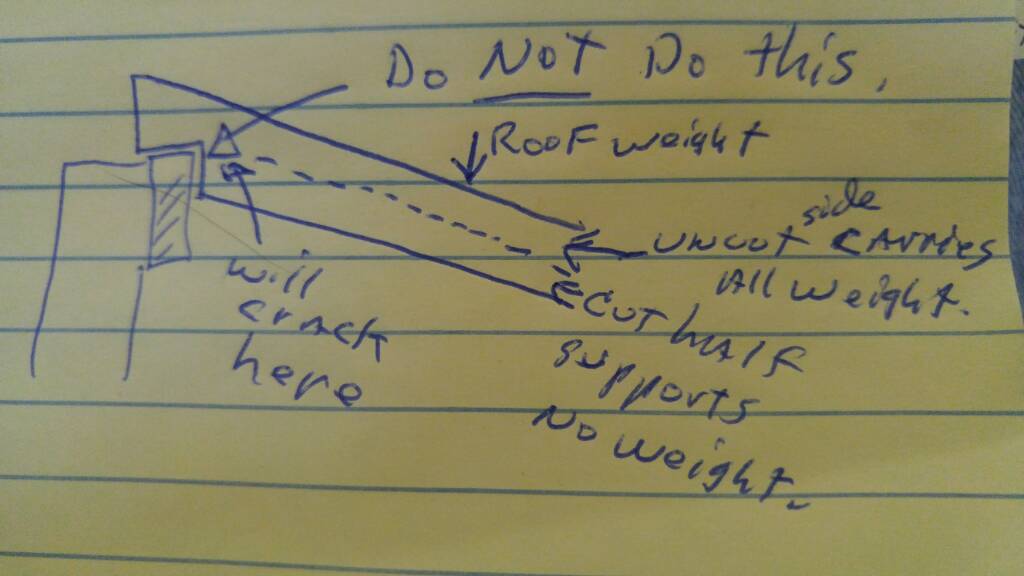 Do NOT Do this.
Roof weight
side
uncut carries
All weight.
will
crack
here
Cut half
supports
No weight.